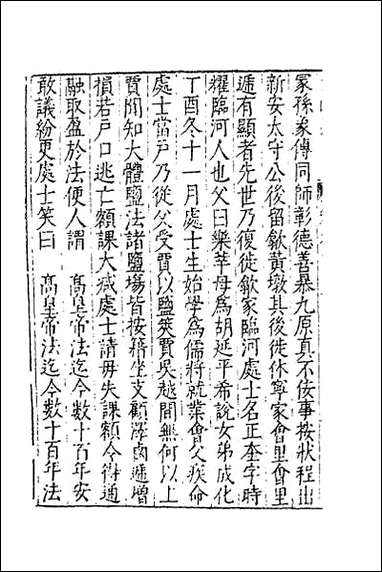 冢孫象傳同師彰德善暴九原真不佞事按狀程出
新安太守公後留歙黄墩其後徙休寧家會里會里
遞有顯者先世乃復徙歙家臨河處士名正奎字時
耀臨河人也父曰樂莘母爲胡延平希說女弟成化
丁酉冬十一月處士生始學爲儒將就業會父疾命
處士當户乃從父受賈以鹽筴賈吳越間無何以上
賈聞知大體鹽法諸鹽場皆按籍坐支顧滷 遞增
損若户口逃亡額課大減處士請毋失課額令得通
融取盈於法便人謂 髙皇帝法迄今數十百年安
敢議紛更處士笑曰 髙皇帝法迄今數十百年法